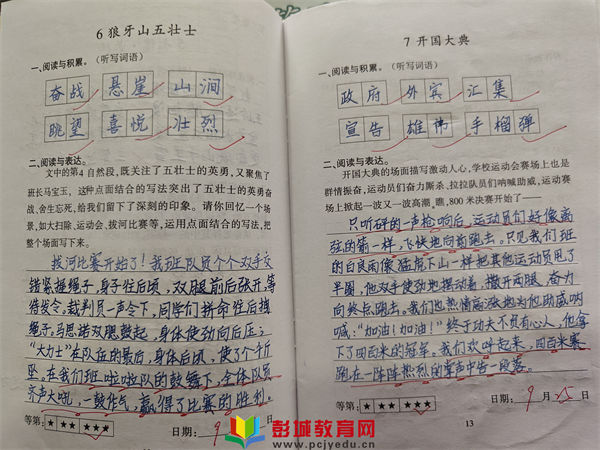 6 狼牙山五壮士
一、阅读与积累。（听写词语）
奋战 悬崖 山涧
眺望 喜悦 壮烈
二、阅读与表达。
文中的第4自然段，既关注了五壮士的英勇，又聚焦了
班长马宝玉，这种点面结合的写法突出了五壮士的英勇奋
战、舍生忘死，给我们留下了深刻的印象。请你回忆一个场
景，如大扫除、运动会、拔河比赛等，运用点面结合的写法，把
整个场面写下来。
拔河比赛开始了！我班队员个个双手交
错紧握绳子，身子往后倾，双腿前后张开，等
待发令。裁判员一声令下，同学们拼命往后拽
绳子，马思诺双腿鼓起，身体使劲向后压；
“大力士”在队伍的最后，身体后倾，使了个千斤
坠。在我们班啦啦队的鼓舞下，全体队员
齐声大吼，一鼓作气，赢得了比赛的胜利。
等第：★★★★★ 日期：9
7 开国大典
一、阅读与积累。（听写词语）
政府 外宾 汇集
宣告 雄伟 手榴弹
二、阅读与表达。
开国大典的场面描写激动人心，学校运动会赛场上也是
群情振奋，运动员们奋力厮杀、拉拉队员们呐喊助威，运动赛
场上掀起一波又一波高潮，瞧，800米决赛开始了——
只听砰的一声枪响后，运动员们好像离
弦的箭一样，飞快地向前跑去。只见我们班
的白良雨像猛虎下山一样把其他运动员甩了
半圈，他双手使劲地摆动着，撒开两腿，奋力
向终点跑去。我们也热情高涨地为他助威呐
喊：“加油！加油！”终于功夫不负有心人，他拿
下了四百米的冠军。我们欢呼起来，四百米赛
跑在一阵阵热烈的掌声中告一段落。
等第：★★★★★ 日期：9月25日
13
彭城教育网
www.pcjyedu.cn